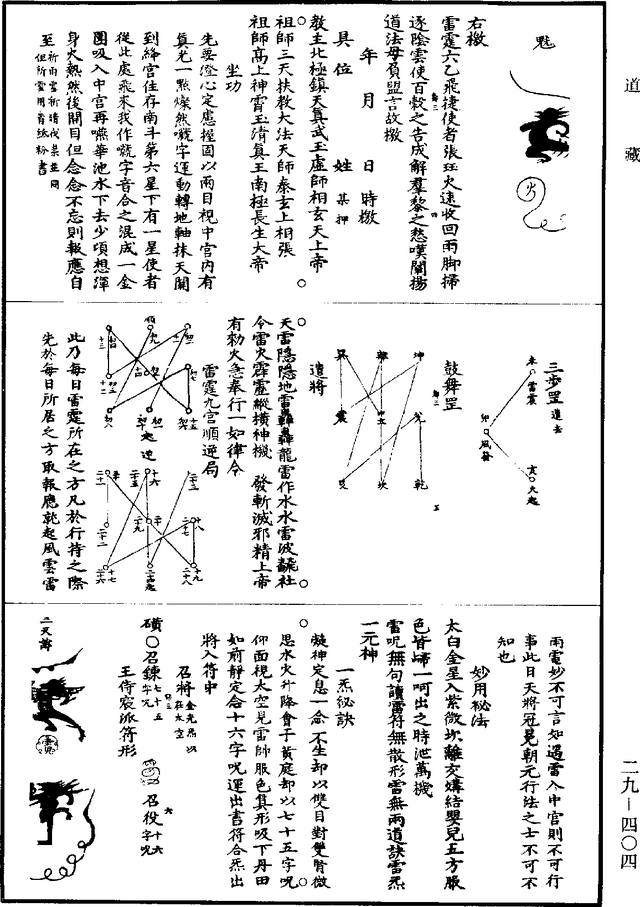 道藏
魁
火
右檄
雷霆六乙飛捷使者張珏火速收回雨脚掃
逐陰雲使百穀之告成解羣黎之愁嘆闡揚
道法毋負盟言故檄
年 月 日 時檄
具位 姓 某押
教主北極鎮天真武玉虛師相玄天上帝
祖師三天扶教大法天師泰玄上相張
祖師高上神霄玉清真王南極長生大帝
坐功
先要澄心定慮握固以兩目視中宮內有
真光一點燦然嘅字運動轉地軸抹天關
到絳宮住存南斗第六星下有一星使者
從此處飛來我作嘅字音合之混成一金
團吸入中宮再嚥華池水下去少頃想渾
身火熱然後開目但念念不忘則報應自
至祈雨雪祈晴伐祟並同
但所雪用青紙粉書
三步罡 遣去
未 雷震
卯 風發
亥 火起
鼓舞罡
坤 離 巽
兌 中 震
乾 坎 艮
遣將
天雷隱隱地雷轟轟龍雷作水水雷波飜社
令雷火霹靂縱橫神機 發斬滅邪精上帝
有勑火急奉行一如律令
雷霆九宮順逆局
順
起
逆
此乃每日雷霆所在之方凡於行持之際
先於每日所居之方取報應就起風雲雷
雨電妙不可言如遇雷入中宮則不可行
事此日天將冠冕朝元行法之士不可不
知也
妙用秘法
太白金星入紫微坎離交媾結嬰兒五方服
色皆歸一呵出之時泄萬機
雷呪無句讀雷符無散形雷無兩道訣雷炁
一元神
一炁秘訣
凝神定息一念不生却以雙目對雙腎微
思水火升降會于黃庭却以七十五字呪
仰面視太空見雷師服色真形吸下丹田
如前靜定念十六字呪運出書符合炁出
將入符中
召將 金光
在太空
磺 召鍊 七十五字呪
召役 十六字呪
王侍宸派符形
二九-四〇四